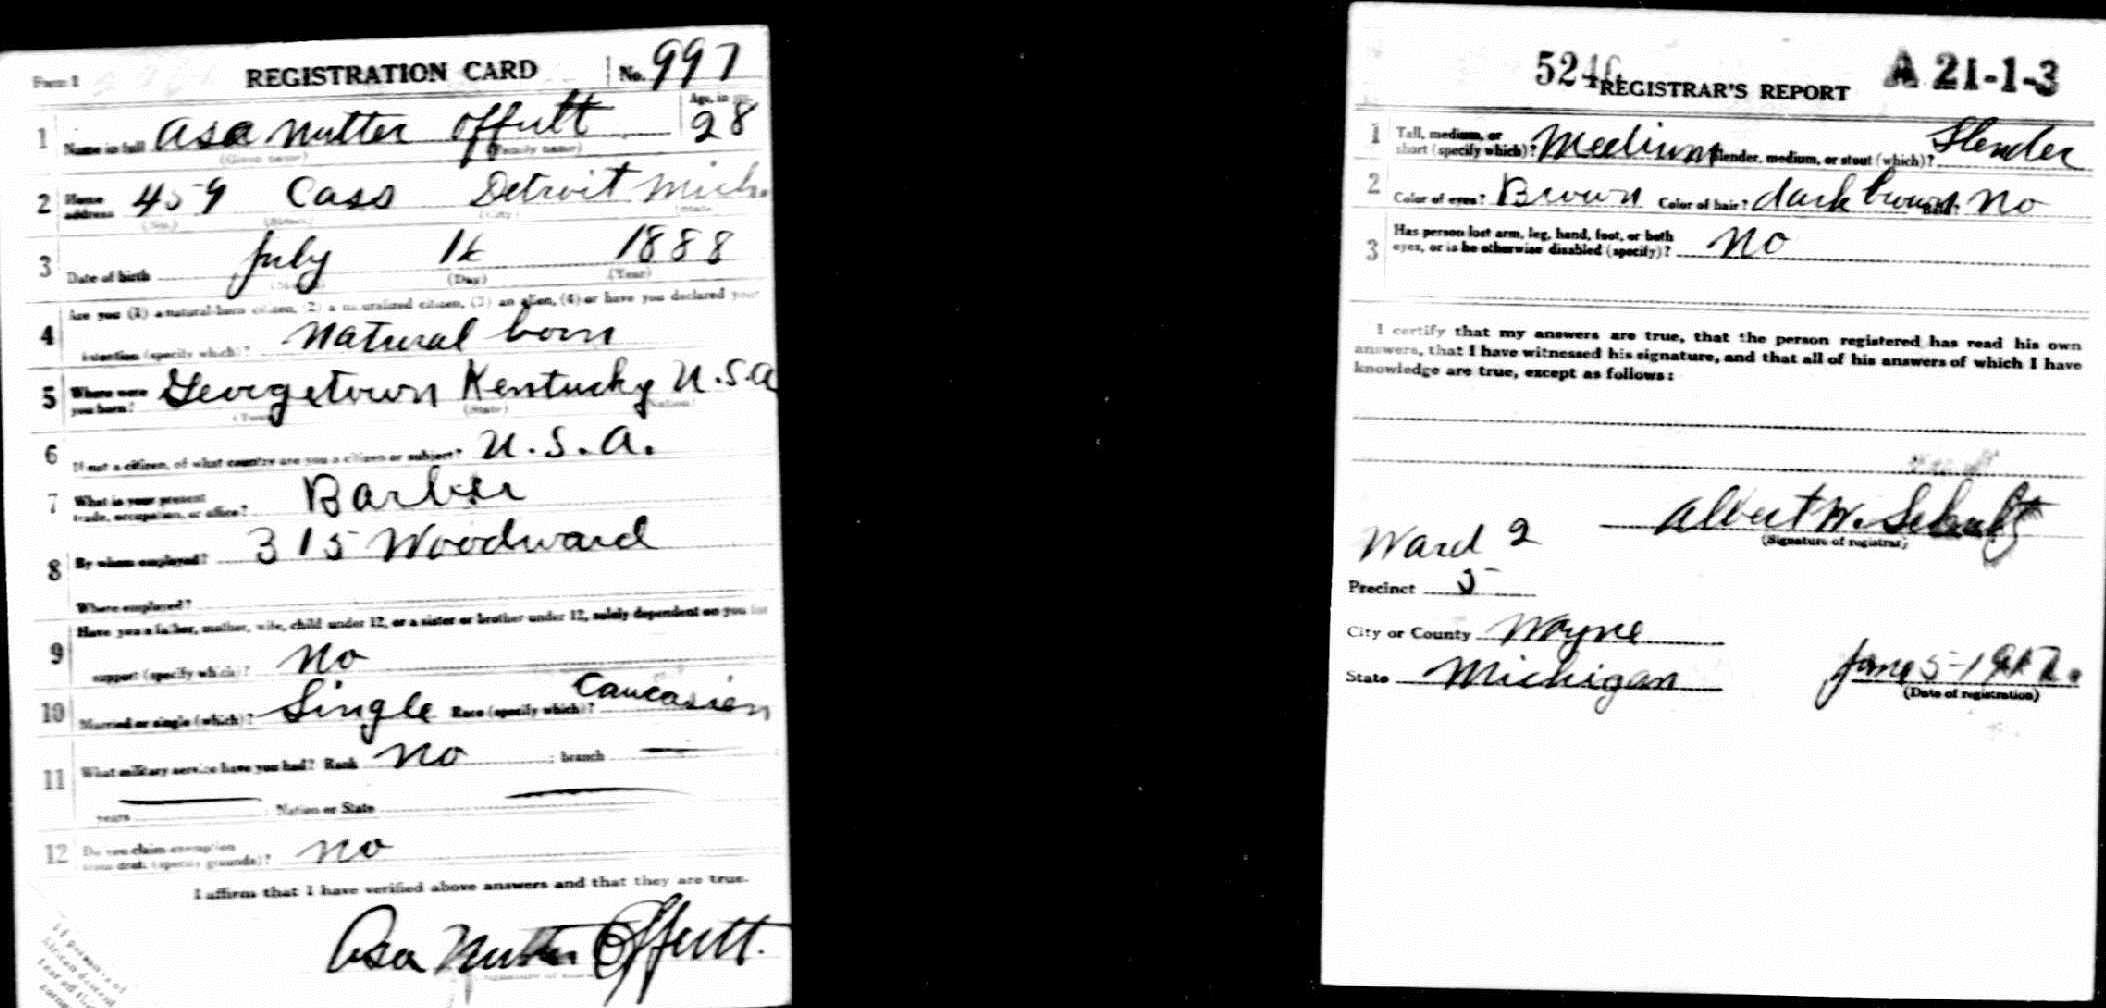 Form 1 REGISTRATION CARD No. 997
1 Name in full Asa Nutter Offutt Age, in yrs. 28
(Given name) (Family name)
2 Home address 459 Cass Detroit Mich.
(No.) (Street) (City) (State)
3 Date of birth July 1888
(Month) (Day) (Year)
Are you (1) a natural-born citizen, (2) a naturalized citizen, (3) an alien, (4) or have you declared your
4 intention (specify which)? Natural born
5 Where were you born? Georgetown Kentucky U.S.A
(Town) (State) (Nation)
6 If not a citizen, of what country are you a citizen or subject? U.S.A.
7 What is your present trade, occupation, or office? Barber
8 By whom employed? 315 Woodward
Where employed?
Have you a father, mother, wife, child under 12, or a sister or brother under 12, solely dependent on you for
9 support (specify which)? No
10 Married or single (which)? Single Race (specify which)? Caucasien
11 What military service have you had? Rank No ; branch
years ; Nation or State
12 Do you claim exemption from draft (specify grounds)? No
I affirm that I have verified above answers and that they are true.
Asa Nutter Offutt.
524 REGISTRAR'S REPORT A 21-1-3
1 Tall, medium, or short (specify which)? Medium Slender, medium, or stout (which)? Slender
2 Color of eyes? Brown Color of hair? dark brown Bald? No
3 Has person lost arm, leg, hand, foot, or both
eyes, or is he otherwise disabled (specify)? No
I certify that my answers are true, that the person registered has read his own
answers, that I have witnessed his signature, and that all of his answers of which I have
knowledge are true, except as follows:
Albert W. Schultz
(Signature of registrar)
Ward 2
Precinct 5
City or County Wayne
State Michigan June 5-1917.
(Date of registration)